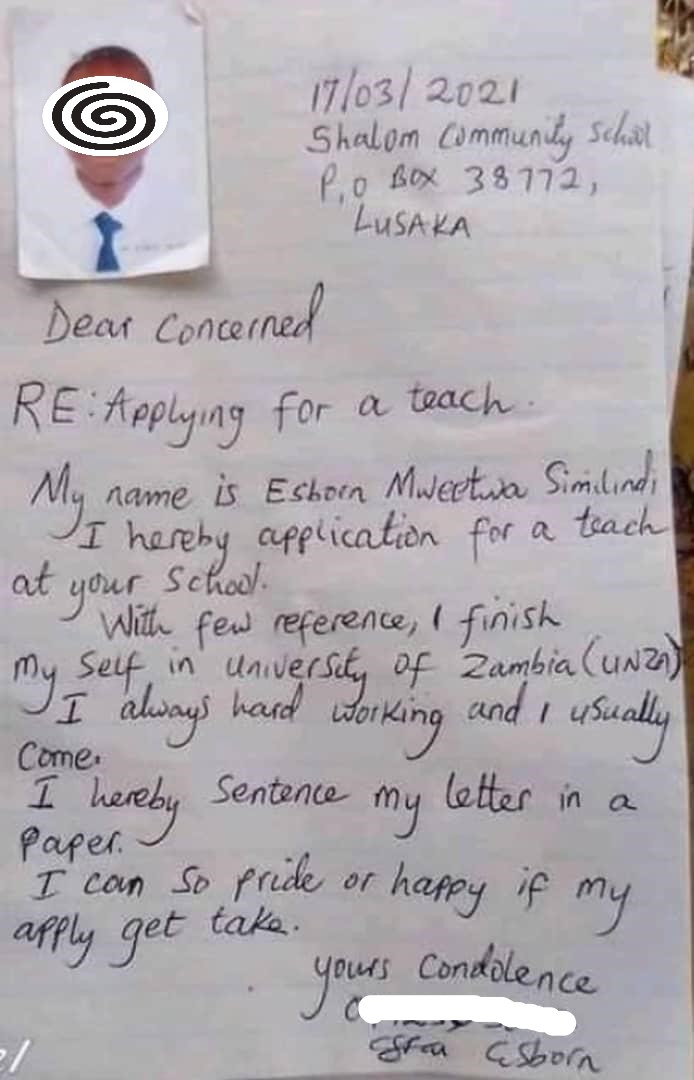 17/03/2021
Shalom Community School
P.O Box 38772,
LUSAKA
Dear Concerned
RE: Applying for a teach.
My name is Esborn Mweetwa Similindi
I hereby application for a teach
at your School.
With few reference, I finish
my Self in university of Zambia (UNZA)
I always hard working and I usually
Come.
I hereby Sentence my letter in a
Paper.
I can So pride or happy if my
apply get take.
yours Condolence
Esborn